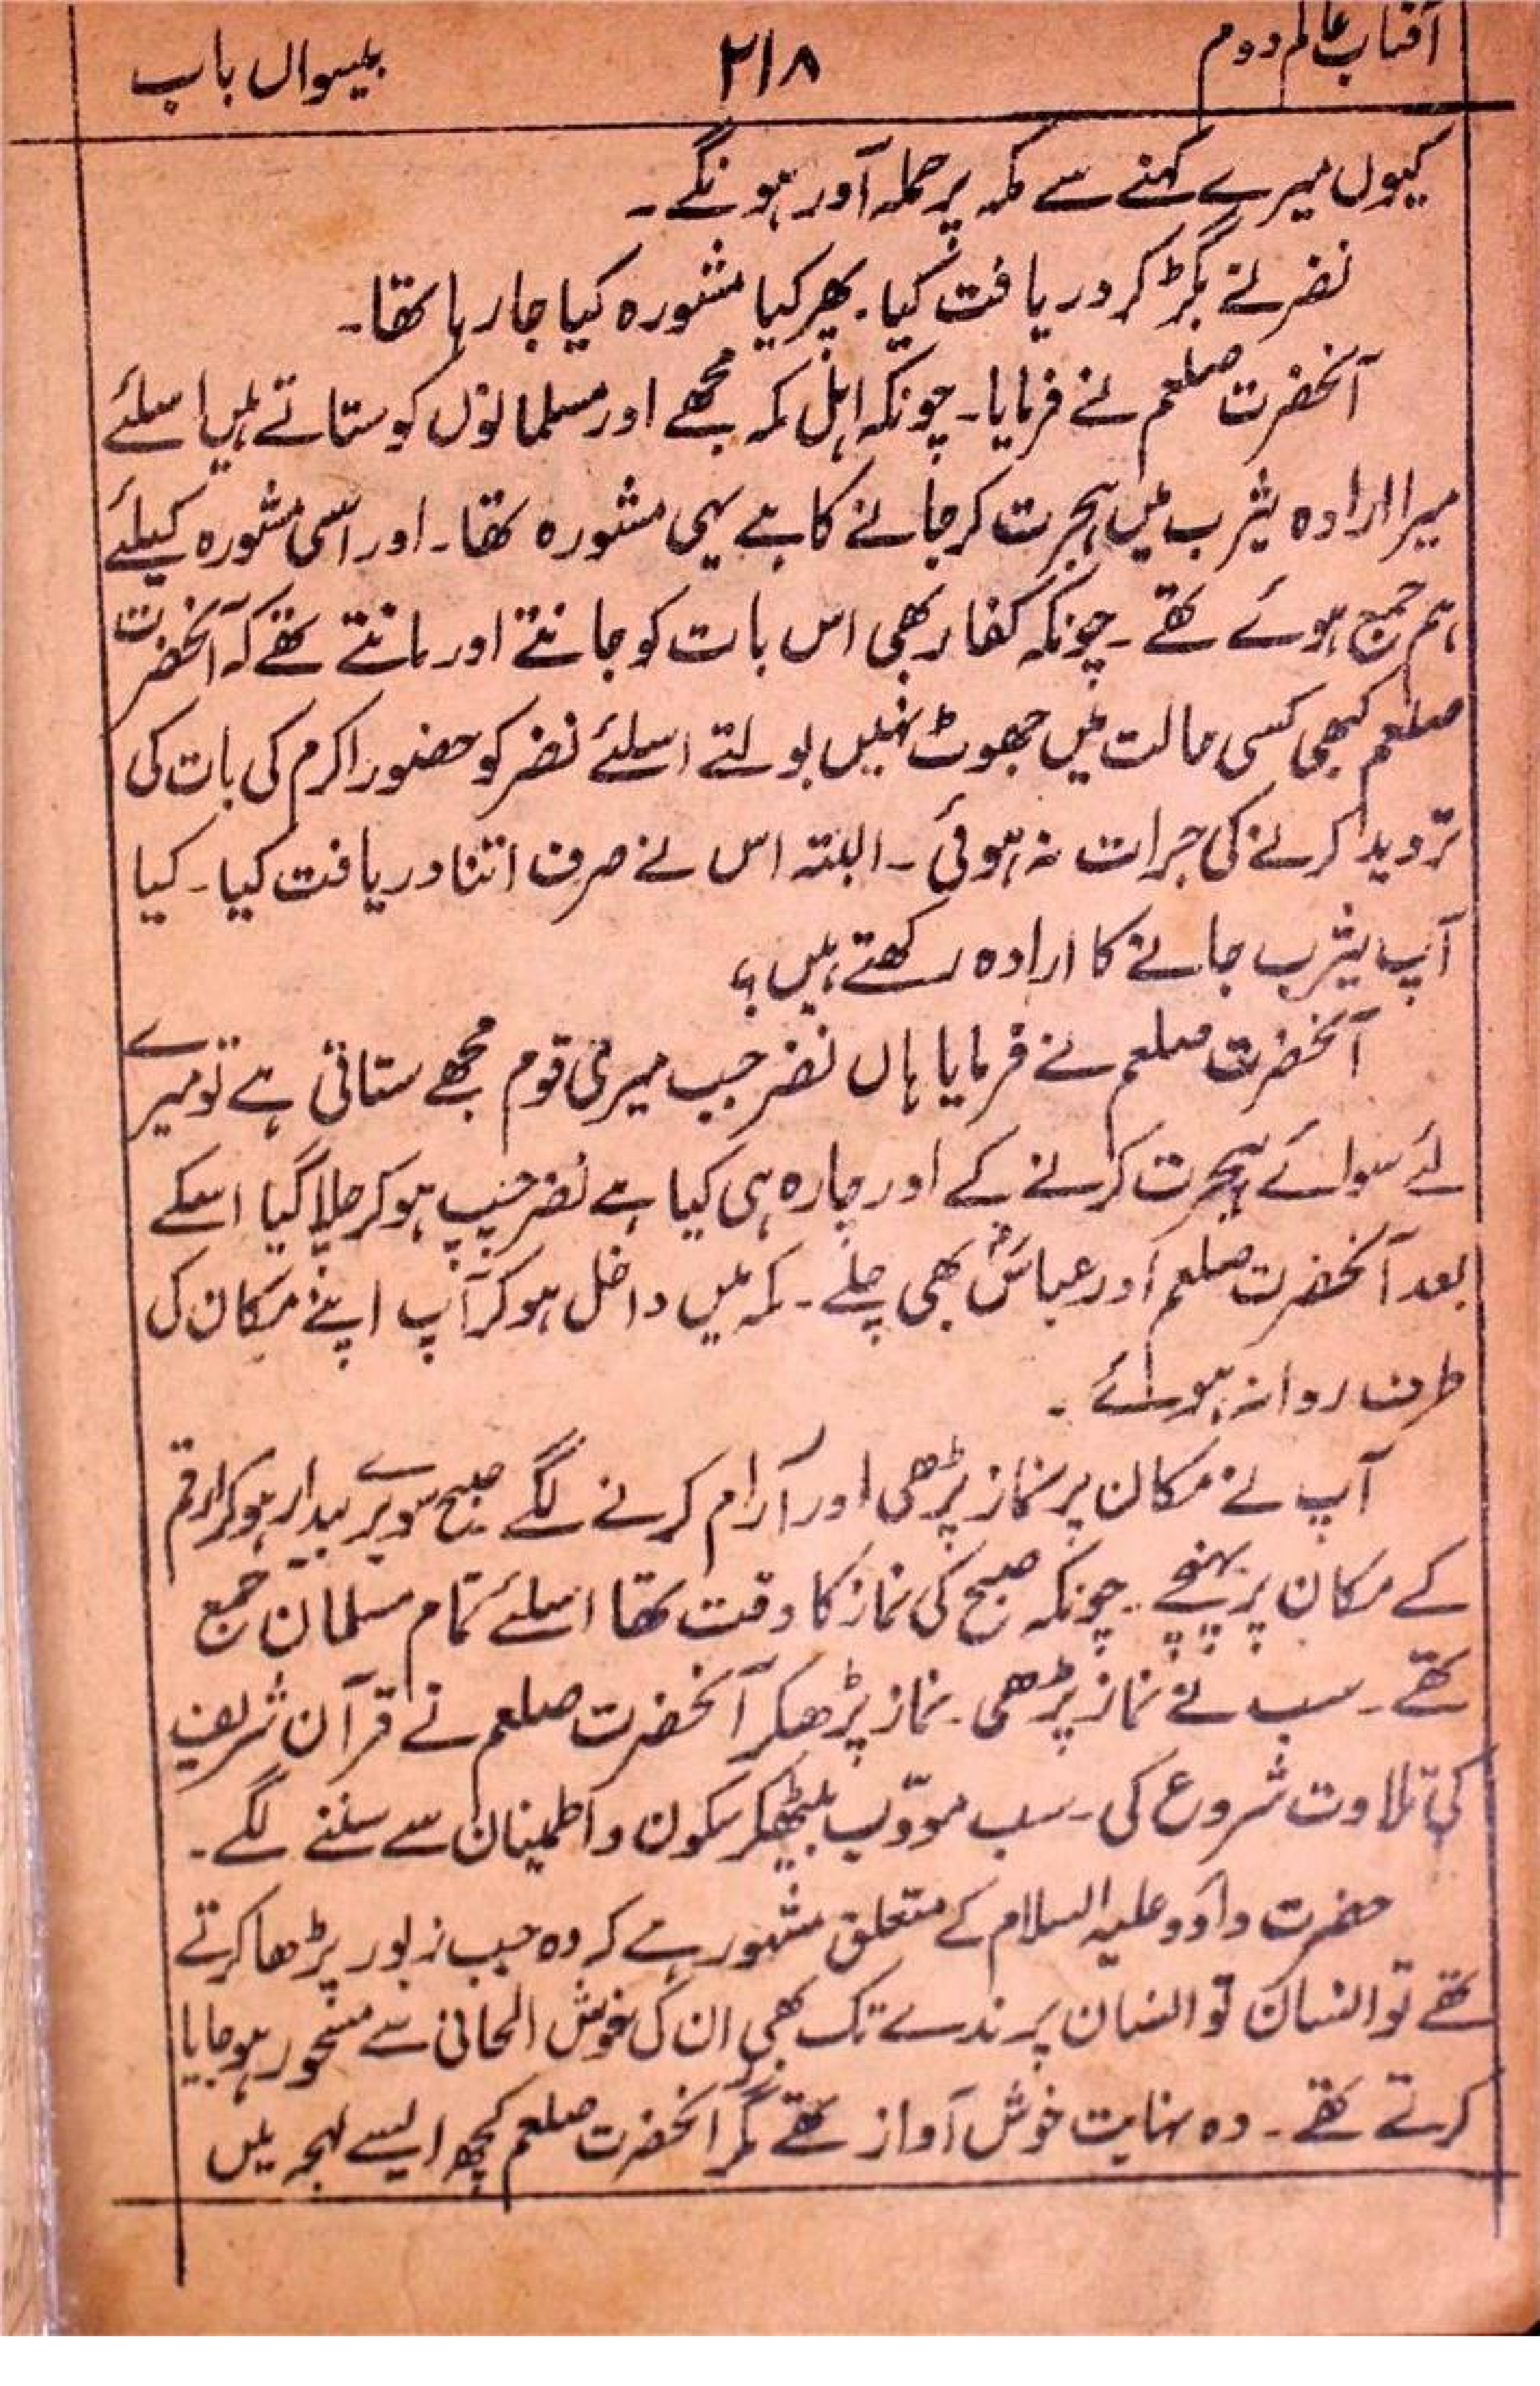 آفتاب عالم دوم
۲۱۸
بیسواں باب
کیوں میرے کہنے سے مکہ پر حملہ آور ہونگے۔
نضر نے بگڑ کر دریافت کیا۔ پھر کیا مشورہ کیا جا رہا تھا۔
آنحضرت صلعم نے فرمایا۔ چونکہ اہل مکہ مجھے اور مسلمانوں کو ستاتے ہیں اسلئے
میرا ارادہ یثرب میں ہجرت کر جانے کا ہے یہی مشورہ تھا۔ اور اسی مشورہ کیلئے
ہم جمع ہوئے تھے۔ چونکہ کفار بھی اس بات کو جانتے اور مانتے تھے کہ آنحضرت
صلعم کبھی کسی حالت میں جھوٹ نہیں بولتے اسلئے نضر کو حضور اکرم کی بات کی
تردید کرنے کی جرات نہ ہوئی۔ البتہ اس نے صرف اتنا دریافت کیا۔ کیا
آپ یثرب جانے کا ارادہ رکھتے ہیں؟
آنحضرت صلعم نے فرمایا ہاں نضر جب میری قوم مجھے ستاتی ہے تو میرے
لئے سوائے ہجرت کرنے کے اور چارہ ہی کیا ہے نضر چپ ہو کر چلا گیا اسکے
بعد آنحضرت صلعم اور عباسؓ بھی چلے۔ مکہ میں داخل ہو کر آپ اپنے مکان کی
طرف روانہ ہوئے۔
آپ نے مکان پر نماز پڑھی اور آرام کرنے لگے صبح سویرے بیدار ہو کر ارقم
کے مکان پر پہنچے۔ چونکہ صبح کی نماز کا وقت تھا اسلئے تمام مسلمان جمع
تھے۔ سب نے نماز پڑھی۔ نماز پڑھکر آنحضرت صلعم نے قرآن شریف
کی تلاوت شروع کی۔ سب مودّب بیٹھکر سکون و اطمینان سے سننے لگے۔
حضرت داؤد علیہ السلام کے متعلق مشہور ہے کہ وہ جب زبور پڑھا کرتے
تھے تو انسان تو انسان پرندے تک بھی ان کی خوش الحانی سے مسحور ہو جایا
کرتے تھے۔ وہ نہایت خوش آواز تھے مگر آنحضرت صلعم کچھ ایسے لہجہ میں